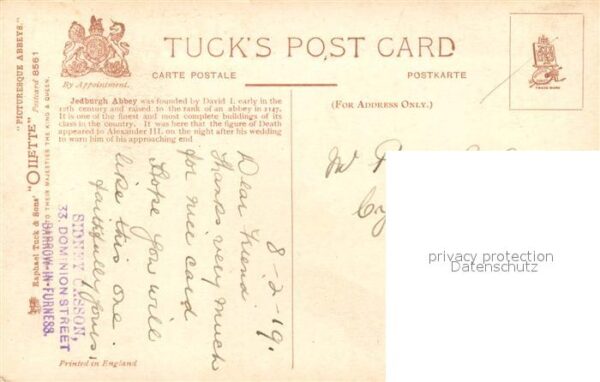 TUCK'S POST CARD
CARTE POSTALE
POSTKARTE
By Appointment.
(FOR ADDRESS ONLY.)
TRADE MARK
Jedburgh Abbey was founded by David I. early in the
12th century and raised to the rank of an abbey in 1147.
It is one of the finest and most complete buildings of its
class in the country. It was here that the figure of Death
appeared to Alexander III. on the night after his wedding
to warn him of his approaching end
"PICTURESQUE ABBEYS."
Raphael Tuck & Sons' "OILETTE" Postcard 8561
TO THEIR MAJESTIES THE KING & QUEEN.
8-2-19.
Dear Friend
Thanks very much
for nice card
Hope you will
like this one.
faithfully yours
SIDNEY CASSON,
33, DOMINION STREET
BARROW-IN-FURNESS.
Mr
Printed in England
privacy protection
Datenschutz